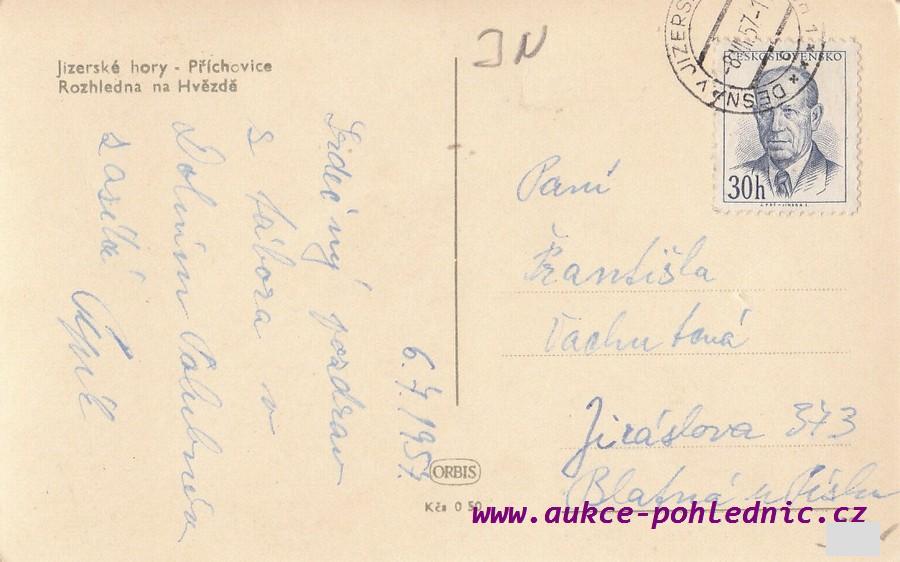 Jizerské hory - Příchovice
Rozhledna na Hvězdě
JN
DESNÁ V JIZERS
-8.VII.57-1
ČESKOSLOVENSKO
30h
6.7.1957.
Srdečný pozdrav
s tábora v
Dolním Polubném
zasílá
Paní
Františka
Vachutová
Jiráskova 373
Blatná u Písku
ORBIS
Kčs 0 50
www.aukce-pohlednic.cz